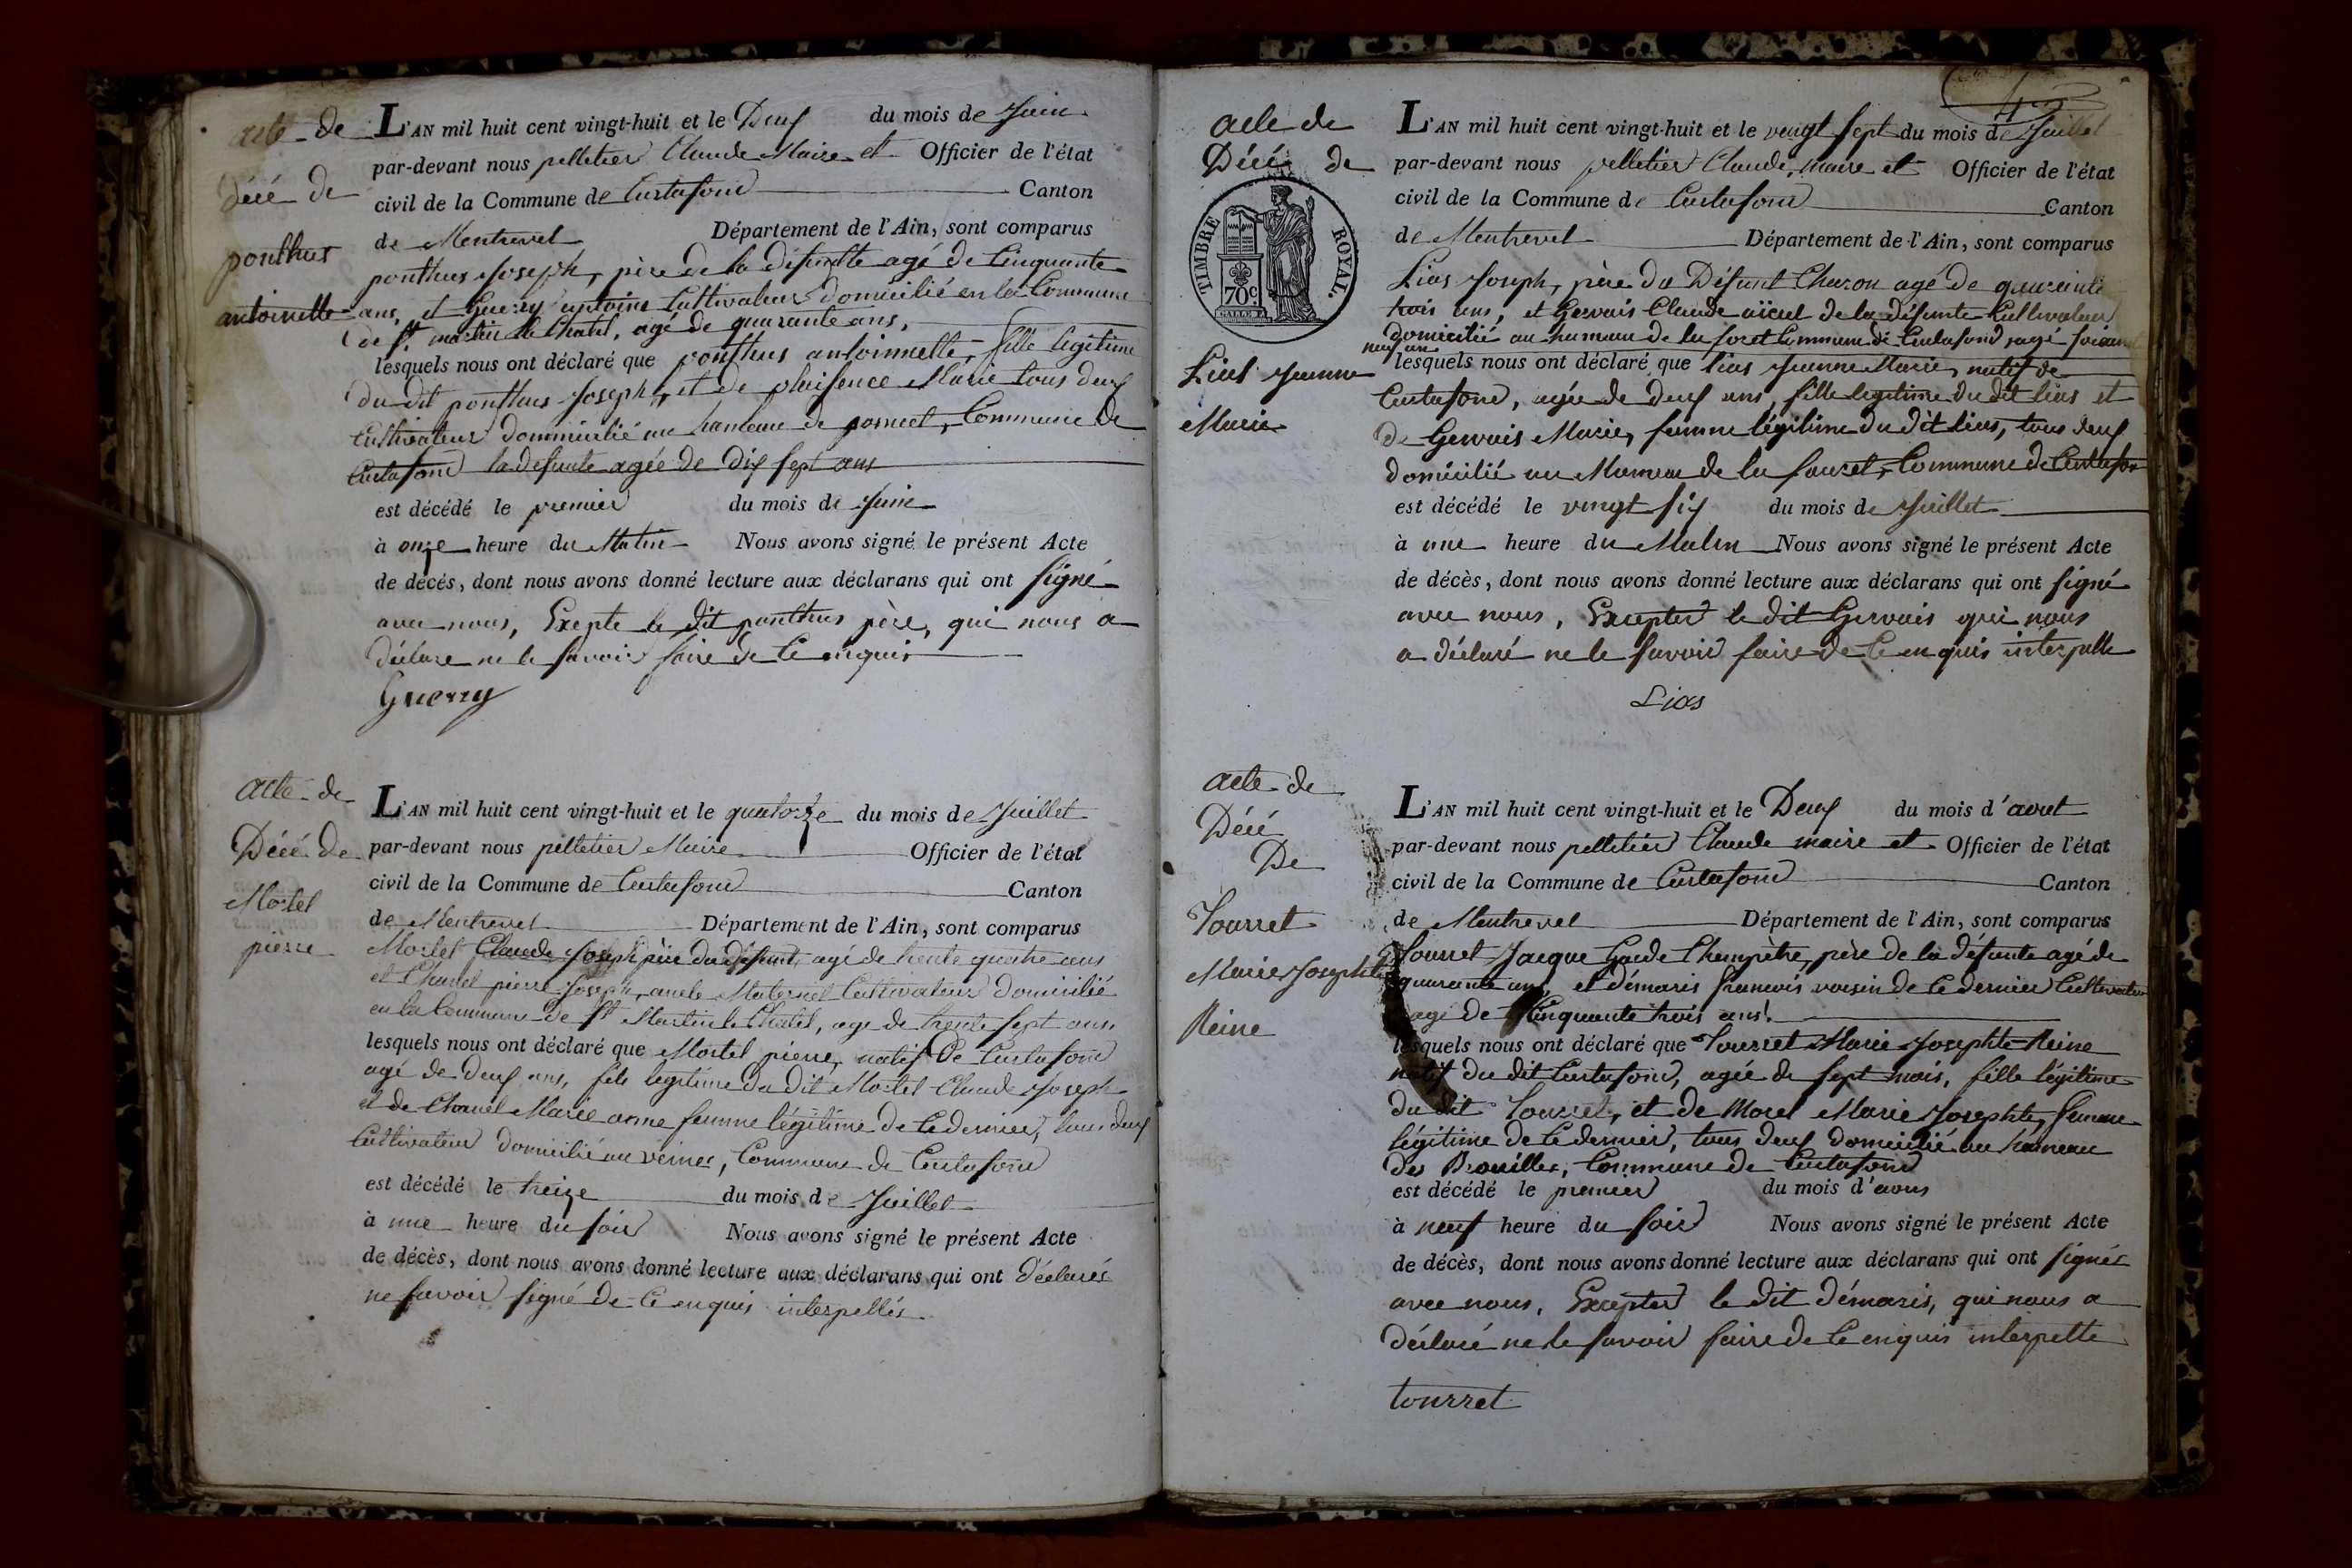 acte de
décé de
ponthus
antoinette
L'AN mil huit cent vingt-huit et le Deux du mois de Juin
par-devant nous pelletier Claude Maire et Officier de l'état
civil de la Commune de Curtafond Canton
de Montrevel Département de l'Ain, sont comparus
ponthus Joseph, père de la défunte agé de Cinquante
ans, et Guerry antoine Cultivateur domicilié en la Commune
de St. martin le Chatel, agé de quarante ans,
lesquels nous ont déclaré que ponthus antoinnette, fille legitime
du dit ponthus Joseph, et de plaisence Marie tous deux
Cultivateur dommicilié au hameau de Commune de
Curtafond la defunte agée de dix sept ans
est décédé le premier du mois de Juin
à onze heure du Matin Nous avons signé le présent Acte
de décès, dont nous avons donné lecture aux déclarans qui ont signé
avec nous, Exepte le dit ponthus père, qui nous a
déclare ne le savoir faire de Ce enquis
Guerry
acte de
Décé de
Mortel
pierre
L'AN mil huit cent vingt-huit et le quatorze du mois de Juillet
par-devant nous pelletier Maire Officier de l'état
civil de la Commune de Curtafond Canton
de Montrevel Département de l'Ain, sont comparus
Mortel Claude Joseph père du défunt, agé de trente quatre ans
et Chanel pierre Joseph, oncle Maternel Cultivateur domicilié
en la Commune de St Martin le Chatel, age de trente sept ans,
lesquels nous ont déclaré que Mortel pierre, natif de Curtafond
agé de deux ans, fils legitime du dit Mortel Claude Joseph
et de Chanel Marie anne femme légitime de Ce dernier, tous deux
Cultivateur domicilié au veines, Commune de Curtafond
est décédé le treize du mois de Juillet
à une heure du soir Nous avons signé le présent Acte
de décès, dont nous avons donné lecture aux déclarans qui ont déclarés
ne savoir signé de Ce enquis interpellés
acte de
Décé de
TIMBRE ROYAL.
70c.
Lias Jeanne
Marie
L'AN mil huit cent vingt-huit et le vingt sept du mois de Juillet
par-devant nous pelletier Claude, maire et Officier de l'état
civil de la Commune de Curtafond Canton
de Montrevel Département de l'Ain, sont comparus
Lias Joseph, père du Défunt Charon agé de quarante
trois ans, et Gervais Claude aïeul de la défunte Cultivateur
domicilié au hameau de la foret Commune de Curtafond agé soixante
neuf ans
lesquels nous ont déclaré que lias Jeanne Marie, natif de
Curtafond, agée de deux ans, fille legitime du dit lias et
de Gervais Marie, femme légitime du dit lias, tous deux
domicilié au Hameau de la fouret, Commune de Curtafon
est décédé le vingt six du mois de Juillet
à une heure du Matin Nous avons signé le présent Acte
de décès, dont nous avons donné lecture aux déclarans qui ont signé
avec nous, Excepter le dit Gervais qui nous
a déclaré ne le savoir faire de Ce enquis interpelle
Lias
acte de
Décé
De
Tourret
Marie Josephte
Reine
L'AN mil huit cent vingt-huit et le Deux du mois d'aout
par-devant nous pelletier Claude maire et Officier de l'état
civil de la Commune de Curtafond Canton
de Montrevel Département de l'Ain, sont comparus
Tourret Jacque Garde Champètre, père de la défunte agé de
quarante ans, et démaris francois voisin de Ce dernier Cultivateur
agé de Cinquante trois ans.
lesquels nous ont déclaré que Tourret Marie Josephte Reine
natif du dit Curtafond, agée de sept mois, fille légitime
du dit Tourret, et de Morel Marie Josephte, femme
légitime de Ce dernier, tous deux domicilié au hameau
des Brouilles, Commune de Curtafond
est décédé le premier du mois d'aous
à neuf heure du soir Nous avons signé le présent Acte
de décès, dont nous avons donné lecture aux déclarans qui ont signés
avec nous, Excepter le dit démaris, qui nous a
déclaré ne le savoir faire de Ce enquis interpelle
tourret